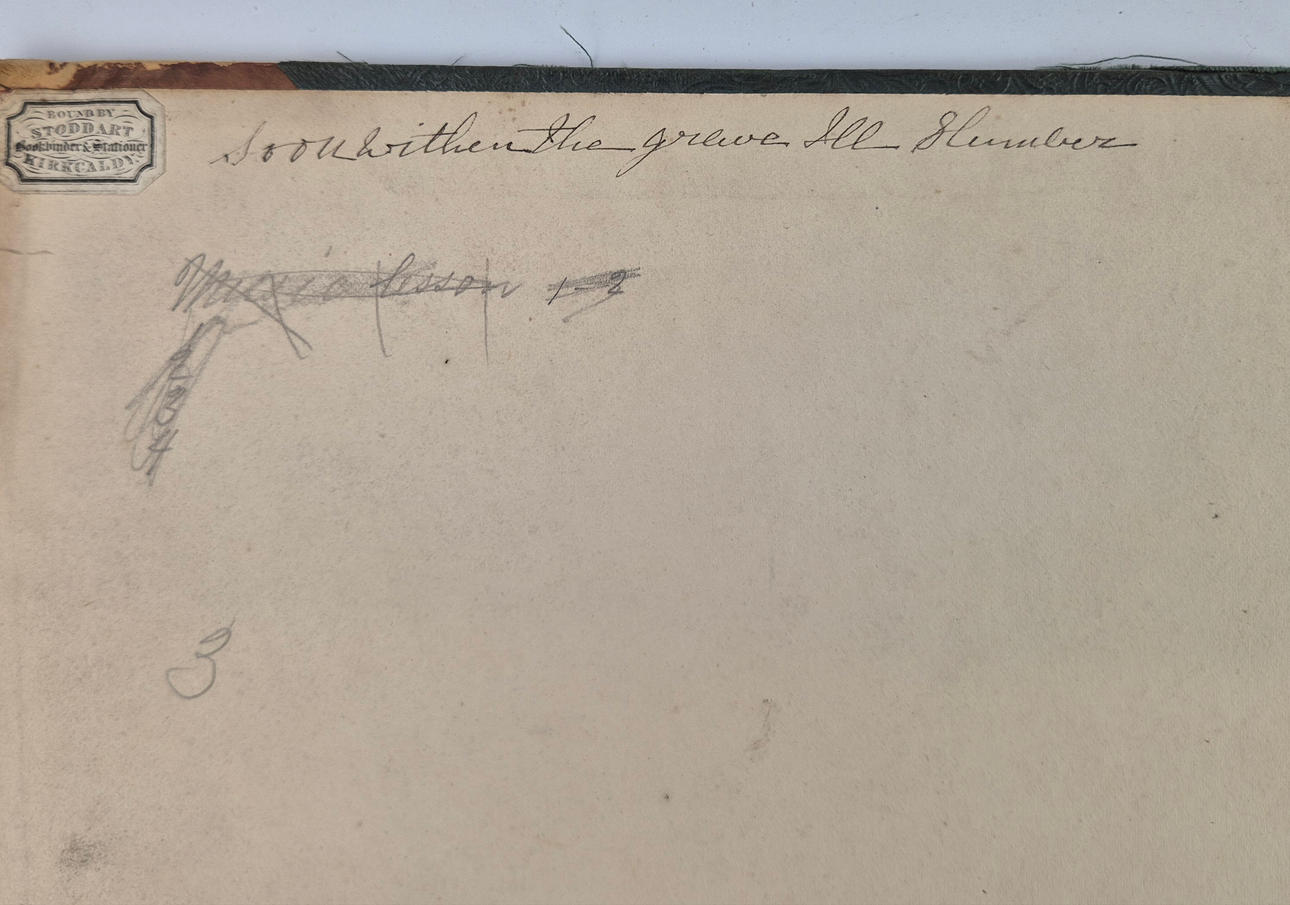 BOUND BY
STODDART
Bookbinder & Stationer
KIRKCALDY.
Soon Withen the greave Ill Slumber
Music lesson 1-2
2
3
4
3